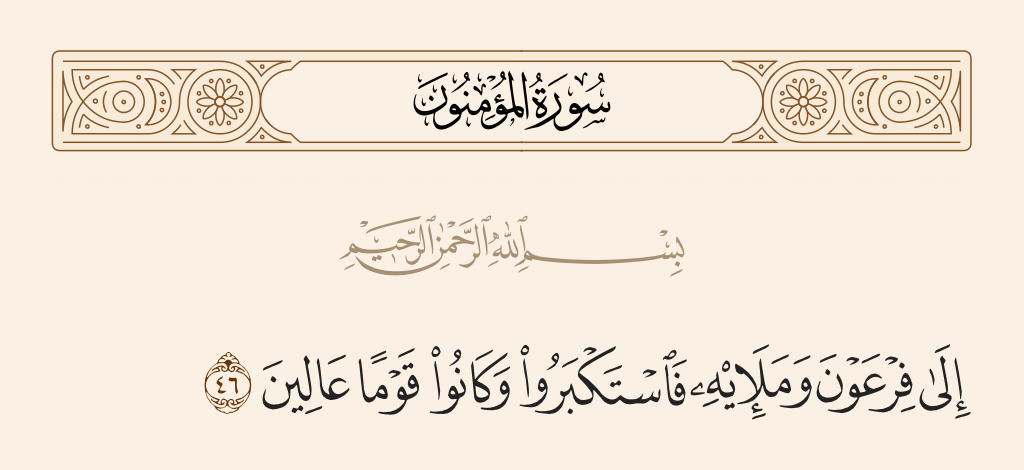 سُورَةُ الْمُؤْمِنُونَ
بِسْمِ ٱللَّهِ ٱلرَّحْمَٰنِ ٱلرَّحِيمِ
إِلَىٰ فِرْعَوْنَ وَمَلَإِيْهِۦ فَٱسْتَكْبَرُوا۟ وَكَانُوا۟ قَوْمًا عَالِينَ ٤٦